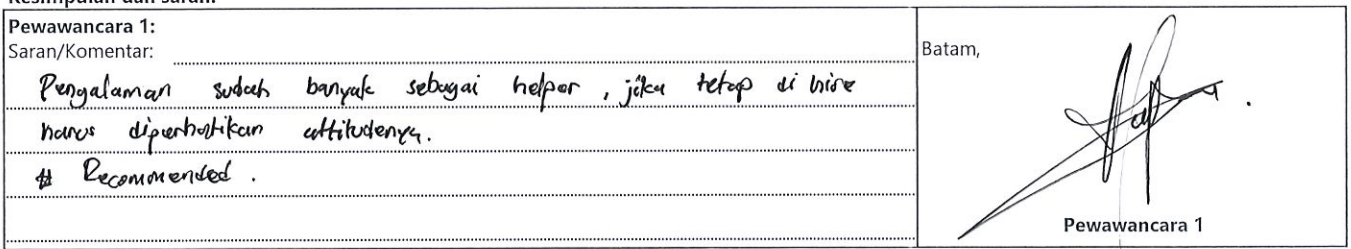 Kesimpulan dan saran:
Pewawancara 1:
Saran/Komentar:
Pengalaman sudah banyak sebagai helper, jika tetap di hire
harus diperhatikan attitudenya.
# Recommended.
Batam,
Pewawancara 1